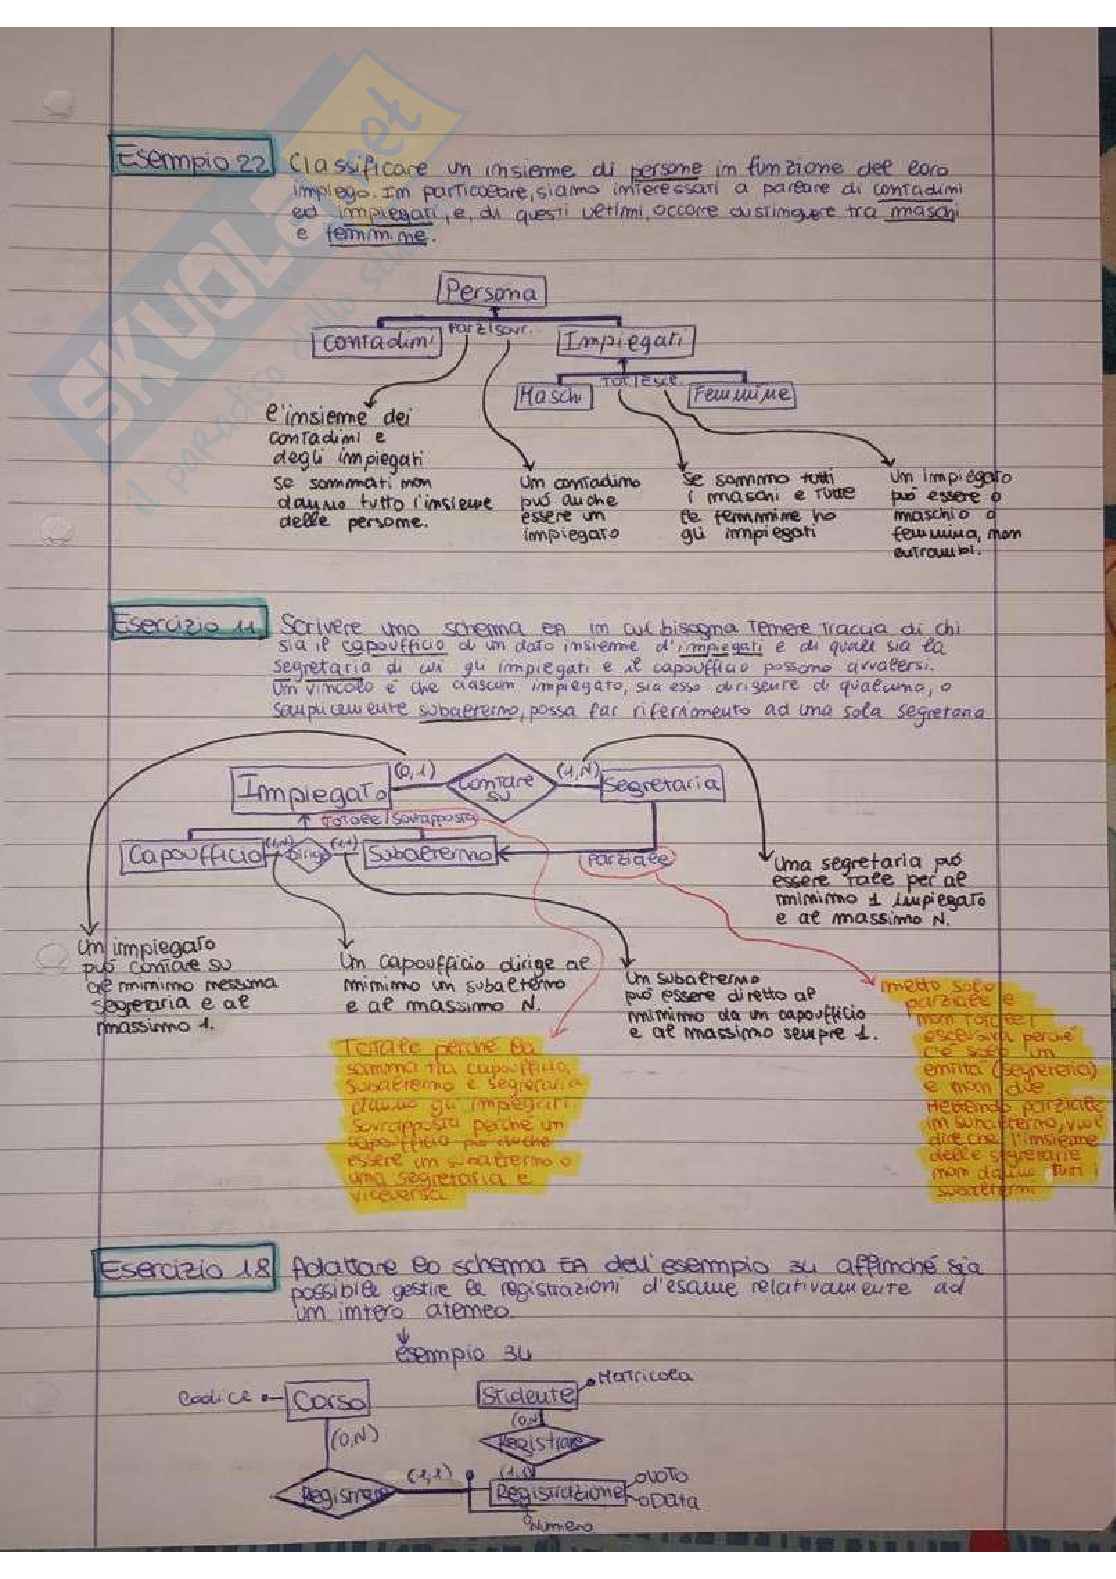 Esempio 22 Classificare un insieme di persone in funzione del loro
impiego. In particolare, siamo interessati a parlare di contadini
ed impiegati, e, di questi ultimi, occorre distinguere tra maschi
e femmine.
Persona
Parz/Sovr.
Contadini
Impiegati
Tot/Escl.
Maschi
Femmine
l'insieme dei
contadini e
degli impiegati
se sommati non
danno tutto l'insieme
delle persone.
Un contadino
può anche
essere un
impiegato
Se sommo tutti
i maschi e tutte
le femmine ho
gli impiegati
Un impiegato
può essere o
maschio o
femmina, non
entrambi.
Esercizio 11 Scrivere uno schema EA in cui bisogna tenere traccia di chi
sia il capoufficio di un dato insieme d'impiegati e di quale sia la
segretaria di cui gli impiegati e il capoufficio possono avvalersi.
Un vincolo è che ciascun impiegato, sia esso dirigente di qualcuno, o
semplicemente subalterno, possa far riferimento ad una sola segretaria
Impiegato
(0,1)
Contare
su
(1,N)
Segretaria
totale/sovrapposta
Capoufficio
(1,N)
Dirige
(1,1)
Subalterno
parziale
Una segretaria può
essere tale per al
minimo 1 impiegato
e al massimo N.
Un impiegato
può contare su
al minimo nessuna
segretaria e al
massimo 1.
Un capoufficio dirige al
minimo un subalterno
e al massimo N.
Un subalterno
può essere diretto al
minimo da un capoufficio
e al massimo sempre 1.
Totale perché la
somma tra capoufficio,
subalterno e segretaria
danno gli impiegati.
Sovrapposta perché un
capoufficio può anche
essere un subalterno o
una segretaria e
viceversa
metto solo
parziale e
non totale/
esclusiva perché
c'è solo un
entità (segretaria)
e non due
Mettendo parziale
in subalterno, vuol
dire che l'insieme
delle segretarie
non danno tutti i
subalterni
Esercizio 18 Adattare lo schema EA dell'esempio 34 affinché sia
possibile gestire le registrazioni d'esame relativamente ad
un intero ateneo.
esempio 34
Codice
Corso
Studente
Matricola
(0,N)
(0,N)
Registrare
(1,1)
(1,1)
Registrazione
Voto
Data
Numero
SKUOLA.net
il paradiso dello studente